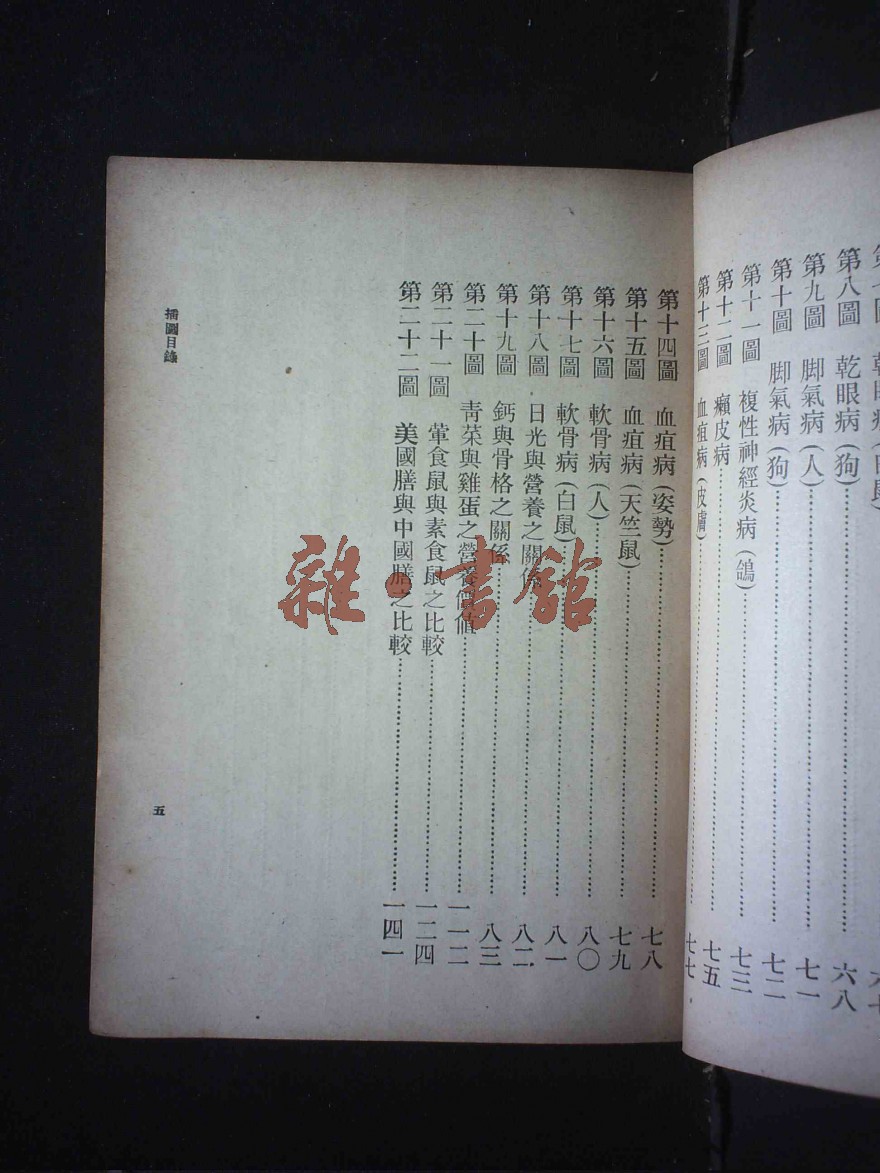 第八圖 乾眼病(狗)⋯⋯六八
第九圖 脚氣病(人)⋯⋯七一
第十圖 脚氣病(狗)⋯⋯七二
第十一圖 複性神經炎病(鴿)⋯⋯七三
第十二圖 癩皮病⋯⋯七五
第十三圖 血疽病(皮膚)⋯⋯七七
第十四圖 血疽病(姿勢)⋯⋯七八
第十五圖 血疽病(天竺鼠)⋯⋯七九
第十六圖 軟骨病(人)⋯⋯八〇
第十七圖 軟骨病(白鼠)⋯⋯八一
第十八圖 日光與營養之關係⋯⋯八二
第十九圖 鈣與骨格之關係⋯⋯八三
第二十圖 靑菜與雞蛋之營養價值⋯⋯一一二
第二十一圖 葷食鼠與素食鼠之比較⋯⋯一二四
第二十二圖 美國膳與中國膳之比較⋯⋯一四一
插圖目錄
五
雜·書館